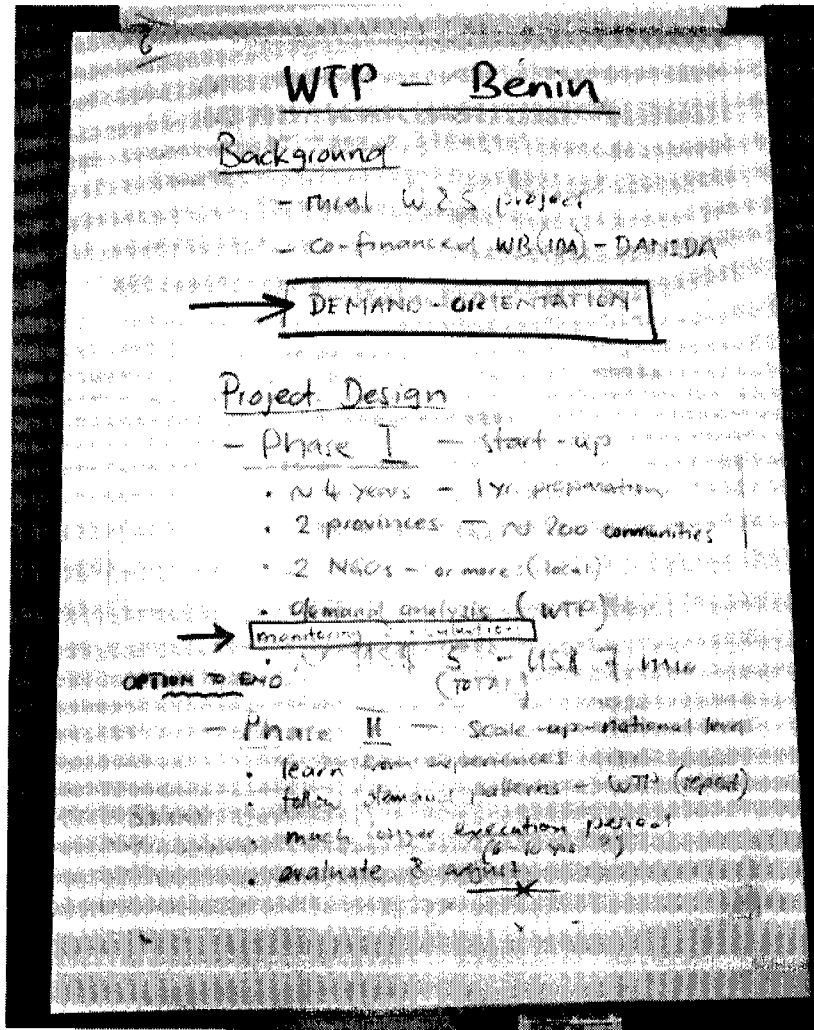 WTP — Bénin
Background
- rural W&S project
- co-financed WB (IDA) - DANIDA
→ DEMAND-ORIENTATION
Project Design
- Phase I — start-up
• ~ 4 years - 1 yr. preparation
• 2 provinces — ~ 200 communities
• 2 NGOs - or more (local)
• demand analysis (WTP)
→ monitoring evaluation
• 5 - US$ 7 mio
(TOTAL)
OPTION TO END
- Phase II — Scale-up national level
• learn from experiences
• follow demand patterns - WTP (repeat)
• much longer execution period
• evaluate & adjust